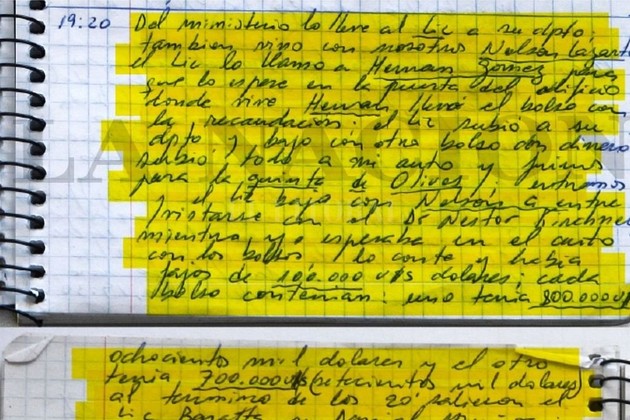 19:20 Del ministerio lo lleve al Lic a su dpto,
tambien vino con nosotros Nelson Lazarte
el Lic lo llamo a Hernan Gomez para
que lo espere en la puerta del edificio
donde vive Hernan llevó el bolso con
la recaudacion; el Lic subio a su
dpto y bajo con otro bolso con dinero
subio todo a mi auto y fuimos
para la quinta de Olivos, entramos
y el Lic bajo con Nelson a entre
vistarse con el Dr Nestor Kirchner
mientras yo esperaba en el auto
con los bolsos lo conte y habia
fajos de 100.000 U$S dolares; cada
bolso contenian: uno tenia 800.000 U$
ochocientos mil dolares y el otro
tenia 700.000 U$S (setecientos mil dolares)
al termino de los 20' salieron el
Lic Baratta
LA NACION